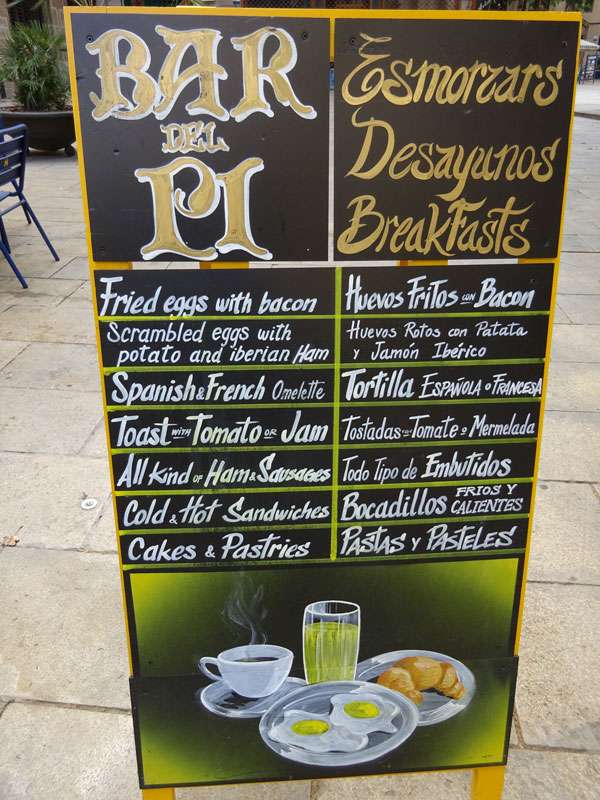 BAR
DEL
PI
Esmorzars
Desayunos
Breakfasts
Fried eggs with bacon
Huevos Fritos con Bacon
Scrambled eggs with
potato and iberian Ham
Huevos Rotos con Patata
y Jamón Ibérico
Spanish & French Omelette
Tortilla ESPAÑOLA o FRANCESA
Toast WITH Tomato OR Jam
Tostadas con Tomate o Mermelada
All Kind OF Ham & Sausages
Todo Tipo de Embutidos
Cold & Hot Sandwiches
Bocadillos FRIOS Y
CALIENTES
Cakes & Pastries
PASTAS Y PASTELES